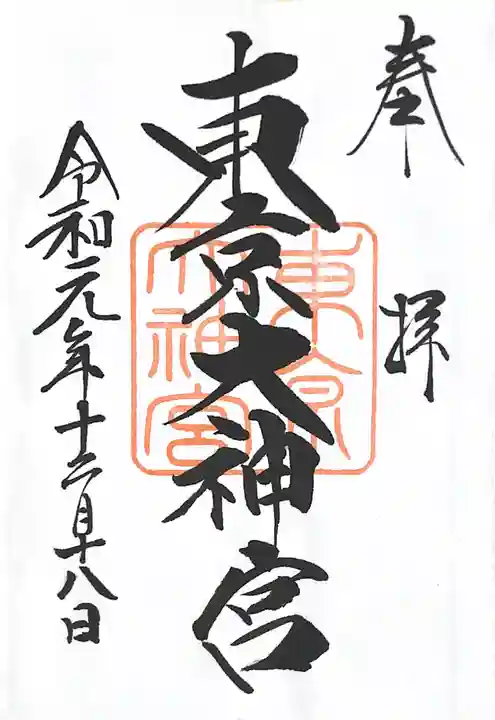 奉拝
東京大神宮
東京大神宮
令和元年十二月十八日